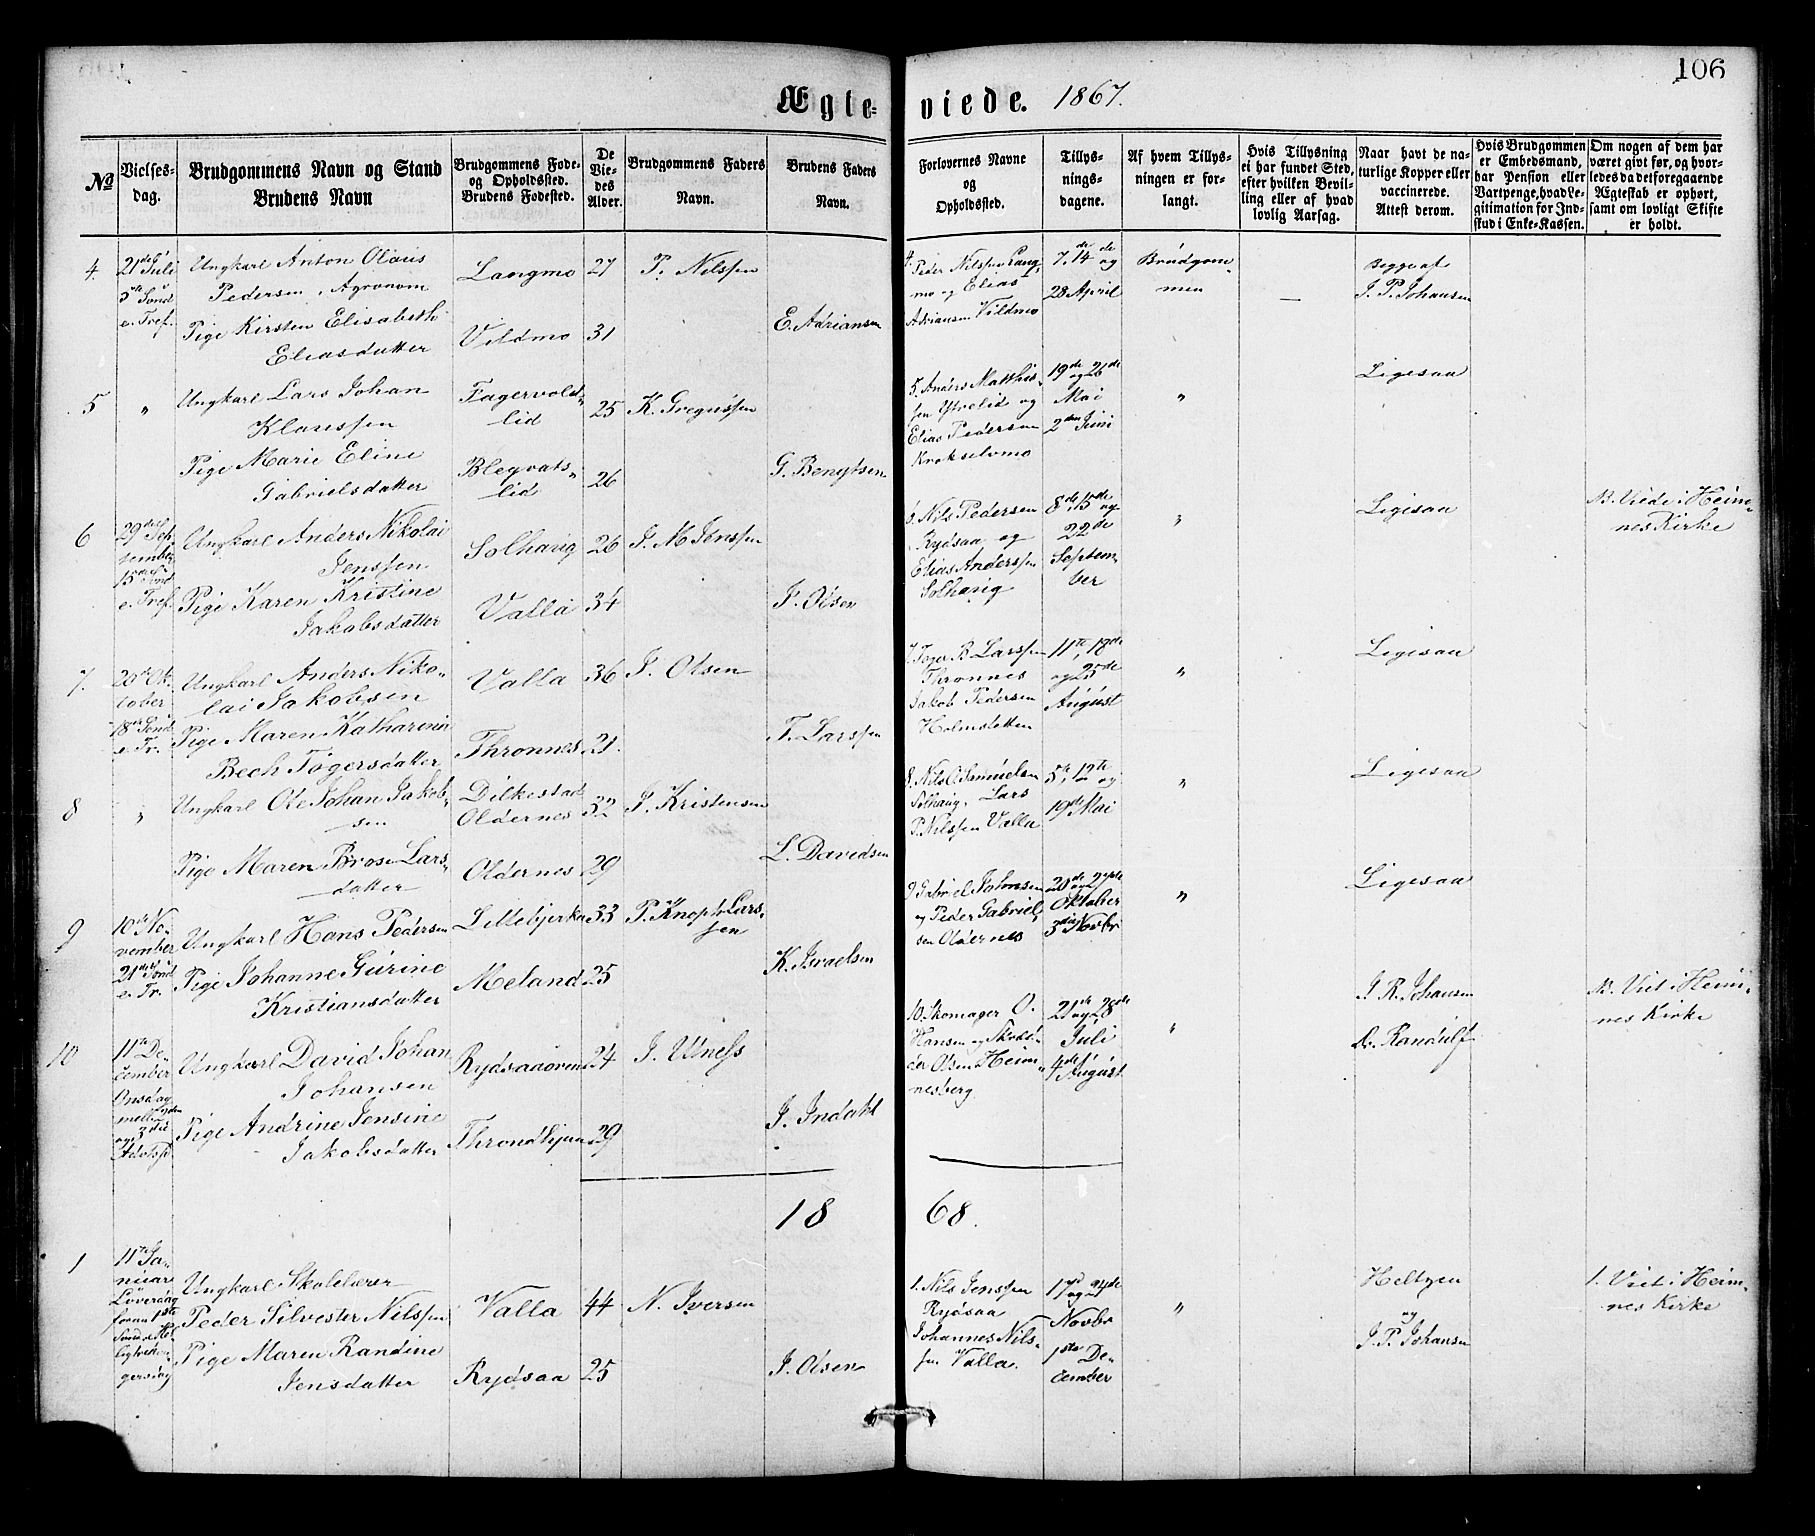 106
Ægteviede. 1867.
No
Vielses-
dag.
Brudgommens Navn og Stand
Brudens Navn
Brudgommens Føde-
og Opholdssted.
Brudens Fødested.
De
Vie-
des
Alder.
Brudgommens Faders
Navn.
Brudens Faders
Navn.
Forlovernes Navne
og
Opholdssted.
Tillys-
nings-
dagene.
Af hvem Tillys-
ningen er for-
langt.
Hvis Tillysning
ei har fundet Sted,
efter hvilken Bevil-
ling eller af hvad
lovlig Aarsag.
Naar havt de na-
turlige Kopper eller
vaccinerede.
Attest derom.
Hvis Brudgommen
er Embedsmand,
har Pension eller
Vartpenge, hvad Le-
gitimation for Ind-
skud i Enke-Kassen.
Om nogen af dem har
været givt før, og hvor-
ledes da det foregaaende
Ægteskab er ophørt,
samt om lovligt Skifte
er holdt.
4.
21de Juli
5te Sønd
e. Tref.
Ungkarl Anton Olaus
Pedersen, Agronom
Pige Kirsten Elisabeth
Eliasdatter
Langmo
Vildmo
27
31
P. Nilssen
E. Adriansen
4. Peder Nilssen Lang-
mo og Elias
Adriansen Vildmo
7de, 14de og
28 April
Brudgom-
men
—
Begge af
J. P. Johansen
5
"
Ungkarl Lars Johan
Klaussen
Pige Marie Eline
Gabrielsdatter
Fagervold-
lid
Blegvats-
lid
25
26
K. Gregussen
G. Bengtsen
5. Anders Matthis-
sen og
Elias Pedersen
Krokselvmo
19de og 26de
Mai
2den Juni
"
Ligesaa
6
29de Sep-
tember
15de Sønd
e. Tref.
Ungkarl Anders Nikolai
Jenssen
Pige Karen Kristine
Jakobsdatter
Solhaug
Valla
26
34
J. M. Jenssen
J. Olsen
6. Nils Pedersen
Rydsaa og
Elias Anderssen
Solhaug
8de, 15de og
22de
Septem-
ber
"
Ligesaa
NB. Viede i Heim-
nes Kirke
7.
20de Ok-
tober
18de Sønd
e. Tr.
Ungkarl Anders Niko-
lai Jakobsen
Pige Maren Katharina
Bech Tøgersdatter
Valla
Thronnes
36
21.
J. Olsen
T. Larssen
7. Tøger B. Larssen
Thronnes
Jakob Pedersen
Holmsletten
11te, 18de
og 25de
August
"
Ligesaa
8
"
Ungkarl Ole Johan Jakob-
sen
Pige Maren Brose Lars-
datter
Dilkestad
Oldernes
Oldernes
32
29
J. Kristensen
L. Davidsen
8. Nils O. Samuelsen
Solhaug, Lars
P. Nilssen Valla
5te, 12te og
19de Mai
"
Ligesaa
9
10de No-
vember
21de Sønd
e. Tr.
Ungkarl Hans Pedersen
Pige Johanne Gurine
Kristiansdatter
Lillebjerka
Meland
33
25
P. Knoph Lars-
sen
K. Israelsen
9 Gabriel Johnsen
og Peder Gabriel-
sen Oldernes
20de og 27de
Oktober
3die Novbr
"
Ligesaa
10
11te De-
cember
Onsdag
mell. 2den
og 3die
Advtsd.
Ungkarl David Johan
Johansen
Pige Andrine Jensine
Jakobsdatter
Rydsaaøren
Throndhjem
24
29
J. Ulness
J. Indahl
10. Skomager O.
Hansen og
Olsen Heim-
nesberg.
21de og 28de
Juli
4de August
"
J. R. Johansen
Dr. Randulf
NB. Viet i Heim-
nes Kirke
1868.
1
11te Ja-
nuar
Løverdag
foran 1ste
Sønd. e. Hel-
ligtrekon-
gersdag
Ungkarl Skolelærer
Peder Silvester Nilssen
Pige Maren Randine
Jensdatter
Valla
Rydsaa
44
25
N. Iversen
J. Olsen
1. Nils Jenssen
Rydsaa
Johannes Nils-
sen Valla.
17de og 24de
Novbr
1ste De-
cember
"
Heltzen
og
J. P. Johansen
1. Viet i Heim-
nes Kirke